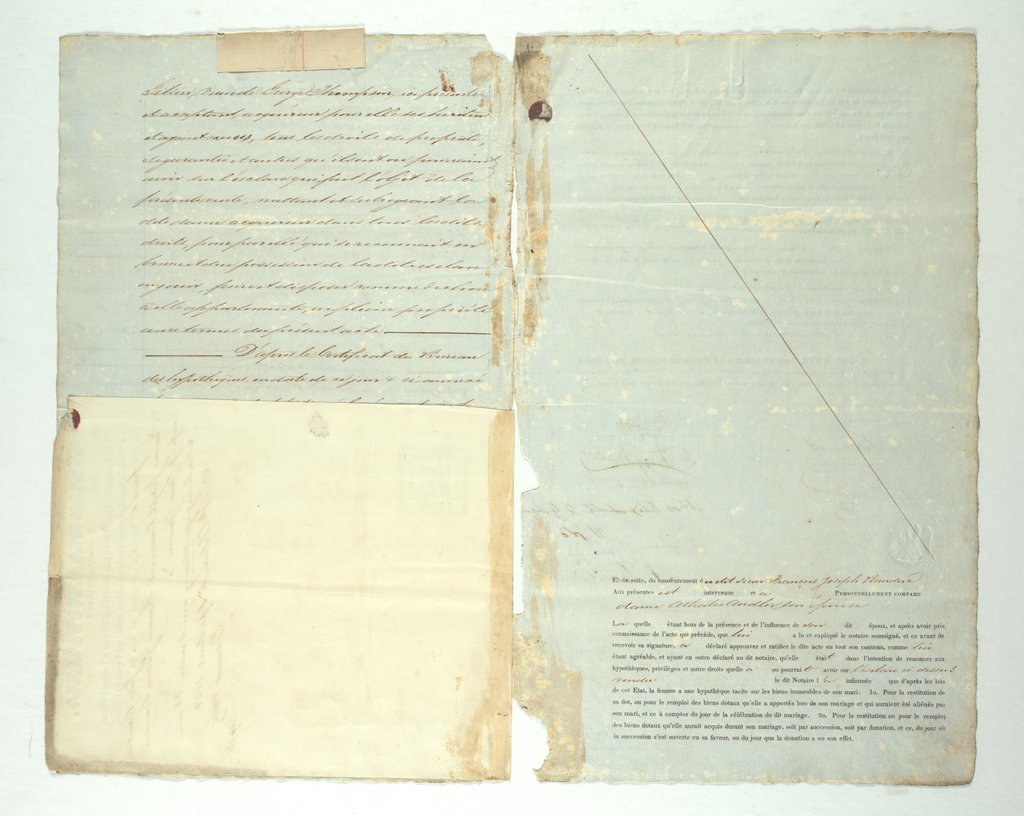 George Thompson, ici présente
et acceptant, acquéreur pour elle ses héritiers
et ayant cause, tous les droits de propriété,
de garantie et autres qu'ils ont ou pourraient
avoir sur l'esclave qui fait l'objet de la
présente vente, mettant et subrogeant la
dite dame acquéreur dans tous les dits
droits, pour par elle qui se reconnait en
possession de la dite esclave
en jouir, faire et disposer comme de chose
à elle appartenante, en pleine propriété
aux termes du présent acte.
D'après le Certificat du Bureau
des hypothèques en date de ce jour & ci annexé
Et de suite, du consentement du dit sieur François Joseph
Aux présentes est intervenue et a PERSONNELLEMENT COMPARU
dame son épouse
La quelle étant hors de la présence et de l'influence de son dit époux, et après avoir pris
connaissance de l'acte qui précède, que lui a lu et expliqué le notaire soussigné, et ce avant de
recevoir sa signature, a déclaré approuver et ratifier le dite acte en tout son contenu, comme lui
étant agréable, et ayant en outre déclaré au dit notaire, qu'elle était dans l'intention de renoncer aux
hypothèques, privilèges et autre droits quelle a ou pourrait avoir sur l'esclave ci dessus
vendue le dit Notaire l'a informée que d'après les lois
de cet Etat, la femme a une hypothèque tacite sur les biens immeubles de son mari: 1o. Pour la restitution de
sa dot, ou pour le remploi des biens dotaux qu'elle a apportés lors de son mariage et qui auraient été aliénés par
son mari, et ce à compter du jour de la célébration du dit mariage. 2o. Pour la restitution ou pour le remploi
des biens dotaux qu'elle aurait acquis durant son mariage, soit par succession, soit par donation, et ce, du jour où
la succession s'est ouverte en sa faveur, ou du jour que la donation a eu son effet.